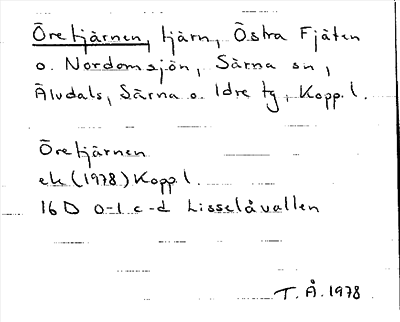 Öretjärnen, tjärn, Östra Fjäten
o. Nordomsjön, Särna sn,
Älvdals, Särna o. Idre tg, Kopp. l.
Öretjärnen
ek (1978) Kopp l.
16 D 0-1 c-d Lisselåvallen
T. Å. 1978